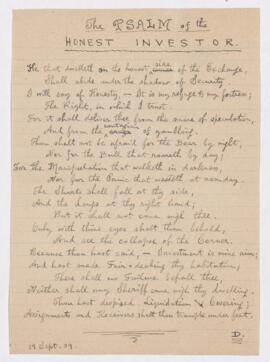 The PSALM of the
HONEST INVESTOR.
He that dwelleth on the honest side of the Exchange,
Shall abide under the shadow of Security.
I will say of Honesty — It is my refuge & my fortress;
The Right, in which I trust.
For it shall deliver thee from the snare of speculation,
And from the contagion of gambling.
Thou shalt not be afraid for the Bear by night,
Nor for the Bull that roareth by day;
For the Manipulation that walketh in darkness,
Nor for the Panic that wasteth at noonday.
The Shorts shall fall at thy side,
And the Longs at thy right hand;
But it shall not come nigh thee.
Only with thine eyes shalt thou behold,
And see the collapse of the Corner.
Because thou hast said, — Investment is mine aim;
And hast made Fair-dealing thy habitation;
There shall no Failure befall thee,
Neither shall any Sheriff come nigh thy dwelling.
Thou hast despised Liquidation & Covering;
Assignments and Receivers shalt thou trample under feet.
D.
19 Sept. 09.